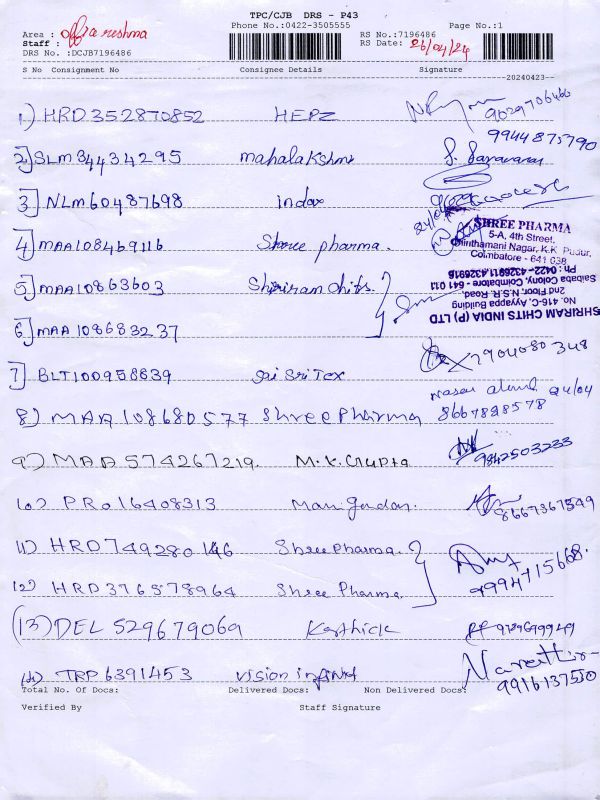 TPC/CJB DRS - P43
Phone No.:0422-3505555 Page No.:1
Area :
Staff : RS No.:7196486
DRS No. :DCJB7196486 RS Date: 26/04/24
S No Consignment No Consignee Details Signature
20240423
1) HRD352870852 HEPZ 9029706460
9944875790
2] SLM34434295 mahalakshmi S. Saravanan
3] NLM60487698 Indar
4] MAA108469116 Shree pharma.
SHREE PHARMA
5-A, 4th Street,
Chinthamani Nagar, K.K. Pudur,
Coimbatore - 641 038
5] MAA10863603 Shriram chits.
SHRIRAM CHITS INDIA (P) LTD
No. 416-C, Ayyappa Building
2nd Floor, N.S.R. Road,
Saibaba Colony, Coimbatore - 641 011
Ph : 0422- 4326911,4326916
6] MAA 108683237
7] BLT100958839 Sai Sri Tex 7904080348
24/04
8667828578
8) MAA 108680577 Shree Pharma
9) MAA 574267219. M.K. Gupta 9842503233
10) PRO16408313 8667367849
11) HRD749280146 Shree Pharma.
12) HRD376578964 Shree Pharma 9994715668.
(13) DEL 529679069 Karthick
14) TRP 6391453 vision
9916137550
Total No. Of Docs: Delivered Docs: Non Delivered Docs:
Verified By Staff Signature